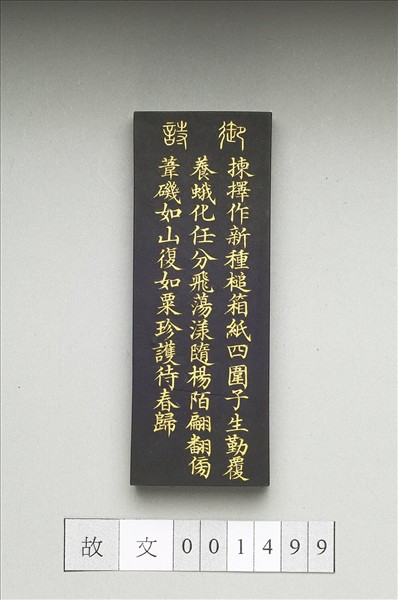 御詩
揀擇作新種槌箱紙四圍子生勤覆
養蛾化任分飛蕩漾隨楊陌翩翻傍
葦磯如山復如粟珍護待春歸
故文001499